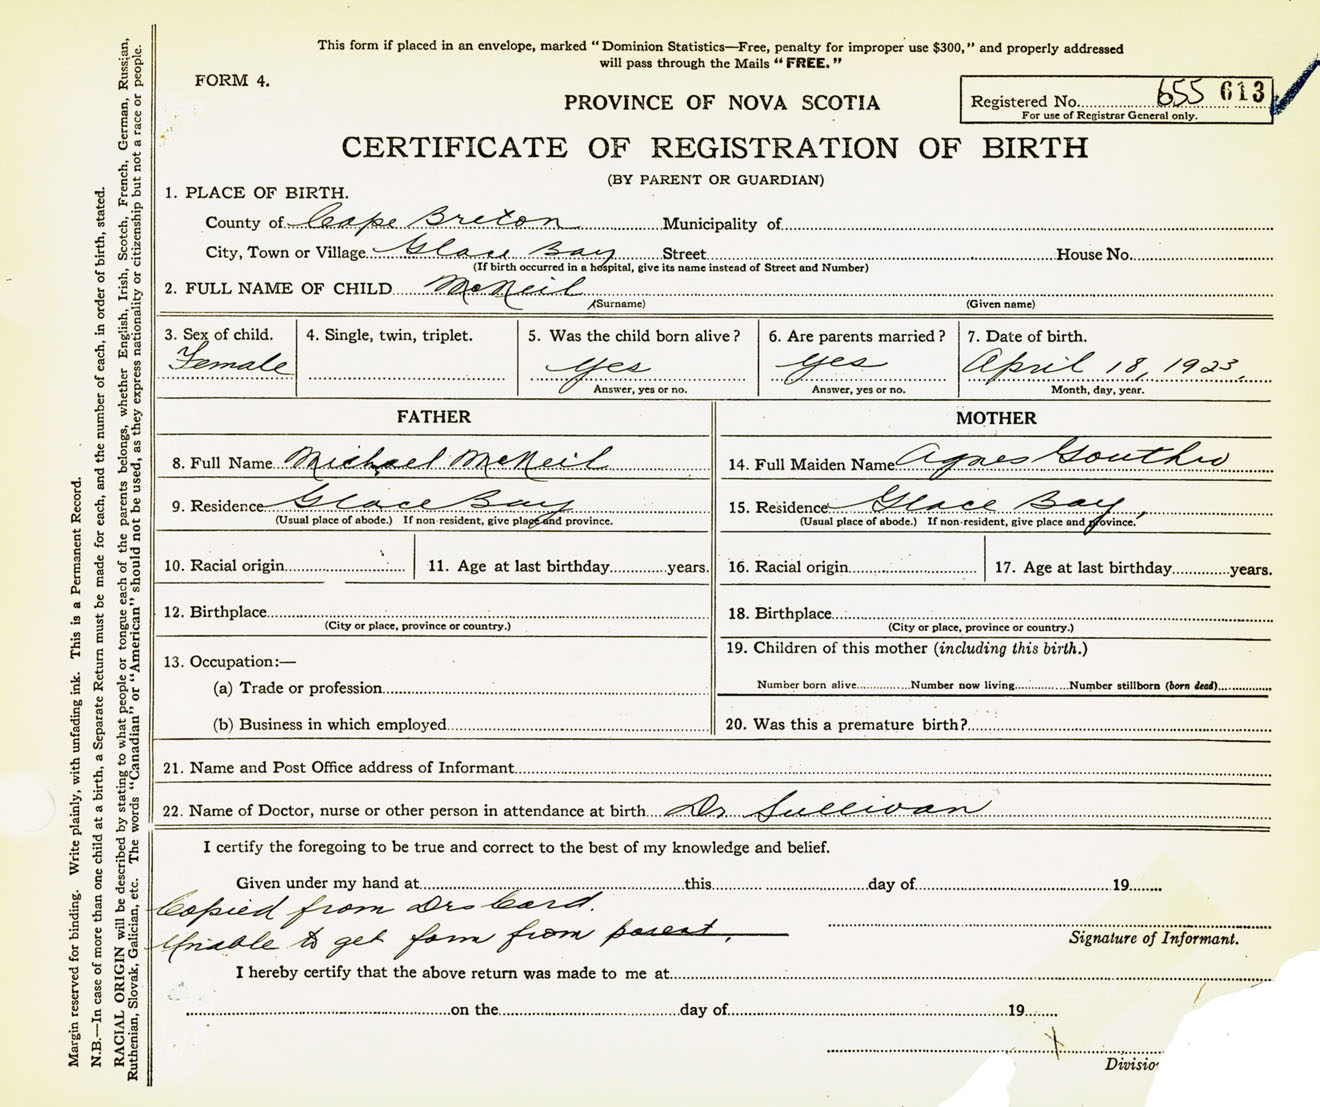 This form if placed in an envelope, marked "Dominion Statistics—Free, penalty for improper use $300," and properly addressed
will pass through the Mails "FREE."
FORM 4.
PROVINCE OF NOVA SCOTIA
Registered No. 655 613
For use of Registrar General only.
CERTIFICATE OF REGISTRATION OF BIRTH
(BY PARENT OR GUARDIAN)
1. PLACE OF BIRTH.
County of Cape Breton Municipality of
City, Town or Village Glace Bay Street House No.
(If birth occurred in a hospital, give its name instead of Street and Number)
2. FULL NAME OF CHILD McNeil
(Surname) (Given name)
3. Sex of child. 4. Single, twin, triplet. 5. Was the child born alive? 6. Are parents married? 7. Date of birth.
Female yes yes April 18, 1923.
Answer, yes or no. Answer, yes or no. Month, day, year.
FATHER MOTHER
8. Full Name Michael McNeil 14. Full Maiden Name Agnes Gouthro
9. Residence Glace Bay 15. Residence Glace Bay
(Usual place of abode.) If non-resident, give place and province. (Usual place of abode.) If non-resident, give place and province.
10. Racial origin 11. Age at last birthday years. 16. Racial origin 17. Age at last birthday years.
12. Birthplace 18. Birthplace
(City or place, province or country.) (City or place, province or country.)
13. Occupation:— 19. Children of this mother (including this birth.)
(a) Trade or profession Number born alive Number now living Number stillborn (born dead)
(b) Business in which employed 20. Was this a premature birth?
21. Name and Post Office address of Informant
22. Name of Doctor, nurse or other person in attendance at birth Dr Sullivan
I certify the foregoing to be true and correct to the best of my knowledge and belief.
Given under my hand at this day of 19
Copied from Drs Card.
Unable to get form from parent.
Signature of Informant.
I hereby certify that the above return was made to me at
on the day of 19
Divisio
Margin reserved for binding. Write plainly, with unfading ink. This is a Permanent Record.
N.B.—In case of more than one child at a birth, a Separate Return must be made for each, and the number of each, in order of birth, stated.
RACIAL ORIGIN will be described by stating to what people or tongue each of the parents belongs, whether English, Irish, Scotch, French, German, Russian,
Ruthenian, Slovak, Galician, etc. The words "Canadian" or "American" should not be used, as they express nationality or citizenship but not a race or people.